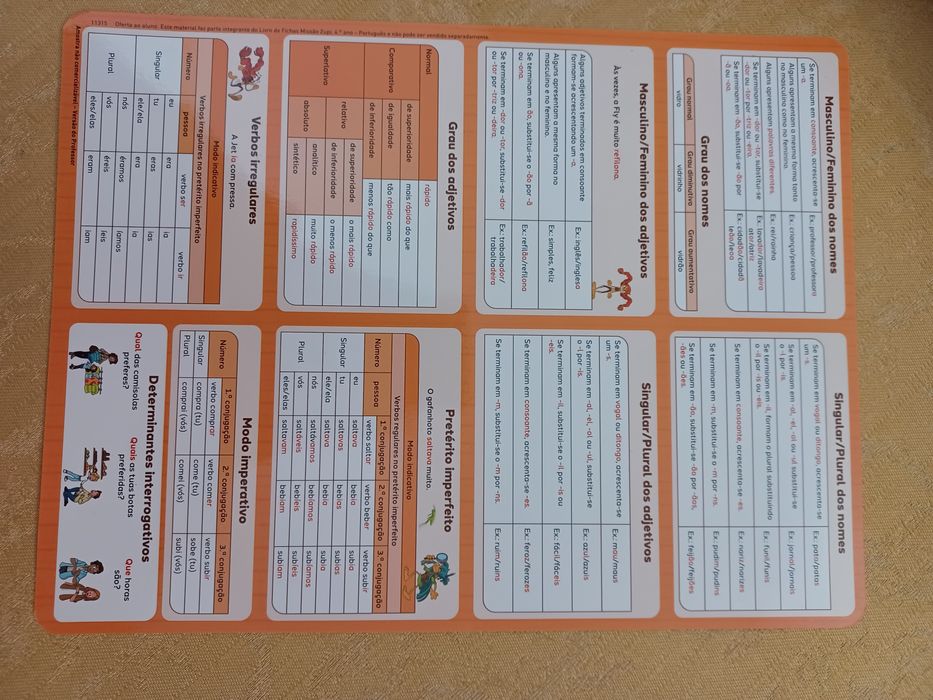 Masculino/Feminino dos nomes
Se terminam em consoante, acrescenta-se
um -a.
Ex.: professor/professora
Alguns apresentam a mesma forma tanto
no masculino como no feminino.
Ex.: criança/pessoa
Alguns apresentam palavras diferentes.
Ex.: rei/rainha
Se terminam em -dor ou -tor, substitui-se
-dor ou -tor por -triz ou -eira.
Ex.: lavador/lavadeira
ator/atriz
Se terminam em -ão, substitui-se -ão por
-ã ou -oa.
Ex.: cidadão/cidadã
leão/leoa
Grau dos nomes
Grau normal
Grau diminutivo
Grau aumentativo
vidro
vidrinho
vidrão
Singular/Plural dos nomes
Se terminam em vogal ou ditongo, acrescenta-se
um -s.
Ex.: pato/patos
Se terminam em -al, -el, -ol ou -ul substitui-se
o -l por -is.
Ex.: jornal/jornais
Se terminam em -il, formam o plural substituindo
o -il por -is ou -eis.
Ex.: funil/funis
Se terminam em consoante, acrescenta-se -es.
Ex.: nariz/narizes
Se terminam em -m, substitui-se o -m por -ns.
Ex.: pudim/pudins
Se terminam em -ão, substitui-se -ão por -ãos,
-ães ou -ões.
Ex.: feijão/feijões
Masculino/Feminino dos adjetivos
Às vezes, a Fly é muito refilona.
Alguns adjetivos terminados em consoante
formam-se acrescentando um -a.
Ex.: inglês/inglesa
Alguns apresentam a mesma forma no
masculino e no feminino.
Ex.: simples, feliz
Se terminam em -ão, substitui-se o -ão por -ã
ou -ona.
Ex.: refilão/refilona
Se terminam em -dor ou -tor, substitui-se -dor
ou -tor por -triz ou -deira.
Ex.: trabalhador/
trabalhadeira
Singular/Plural dos adjetivos
Se terminam em vogal ou ditongo, acrescenta-se
um -s.
Ex.: mau/maus
Se terminam em -al, -el, -ol ou -ul, substitui-se
o -l por -is.
Ex.: azul/azuis
Se terminam em -il, substitui-se o -il por -is ou
-eis.
Ex.: fácil/fáceis
Se terminam em consoante, acrescenta-se -es.
Ex.: feroz/ferozes
Se terminam em -m, substitui-se o -m por -ns.
Ex.: ruim/ruins
Grau dos adjetivos
Normal
rápido
Comparativo
de superioridade
mais rápido do que
de igualdade
tão rápido como
de inferioridade
menos rápido do que
Superlativo
relativo
de superioridade
o mais rápido
de inferioridade
o menos rápido
absoluto
analítico
muito rápido
sintético
rapidíssimo
Pretérito imperfeito
O gafanhoto saltava muito.
Modo indicativo
Verbos regulares no pretérito imperfeito
Número
pessoa
1.ª conjugação
2.ª conjugação
3.ª conjugação
verbo saltar
verbo beber
verbo subir
Singular
eu
saltava
bebia
subia
tu
saltavas
bebias
subias
ele/ela
saltava
bebia
subia
Plural
nós
saltávamos
bebíamos
subíamos
vós
saltáveis
bebíeis
subíeis
eles/elas
saltavam
bebiam
subiam
Verbos irregulares
A Jet ia com pressa.
Modo indicativo
Verbos irregulares no pretérito imperfeito
Número
pessoa
verbo ser
verbo ir
Singular
eu
era
ia
tu
eras
ias
ele/ela
era
ia
Plural
nós
éramos
íamos
vós
éreis
íeis
eles/elas
eram
iam
Modo imperativo
Número
1.ª conjugação
2.ª conjugação
3.ª conjugação
verbo comprar
verbo comer
verbo subir
Singular
compra (tu)
come (tu)
sobe (tu)
Plural
comprai (vós)
comei (vós)
subi (vós)
Determinantes interrogativos
Qual das camisolas
preferes?
Quais as tuas botas
preferidas?
Que horas
são?
11315 Oferta ao aluno. Este material faz parte integrante do Livro de Fichas Missão Zupi, 4.º ano - Português e não pode ser vendido separadamente.
Amostra não comercializável - Versão do Professor